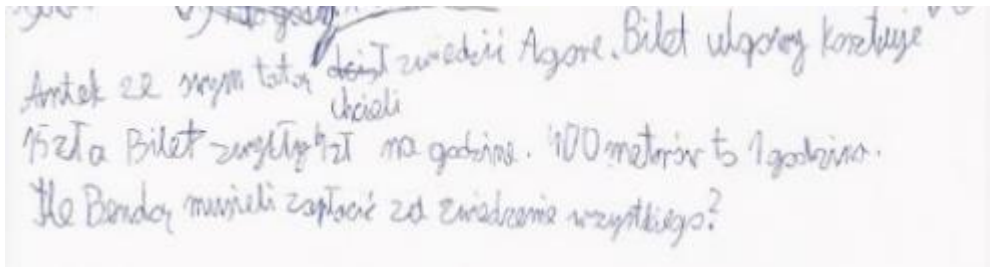 Antek ze swym tatą chcieli zwiedzić Agorę. Bilet ulgowy kosztuje
15zł a Bilet zwykły zł na godzinę. 100 metrów to 1 godzina.
Ile Bendą musieli zapłacić za zwiedzenie wszystkiego?